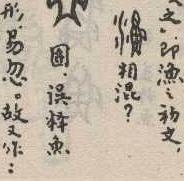 文，即漁之初文，
相混？
圖．誤释魚．
形易忽。故又作：